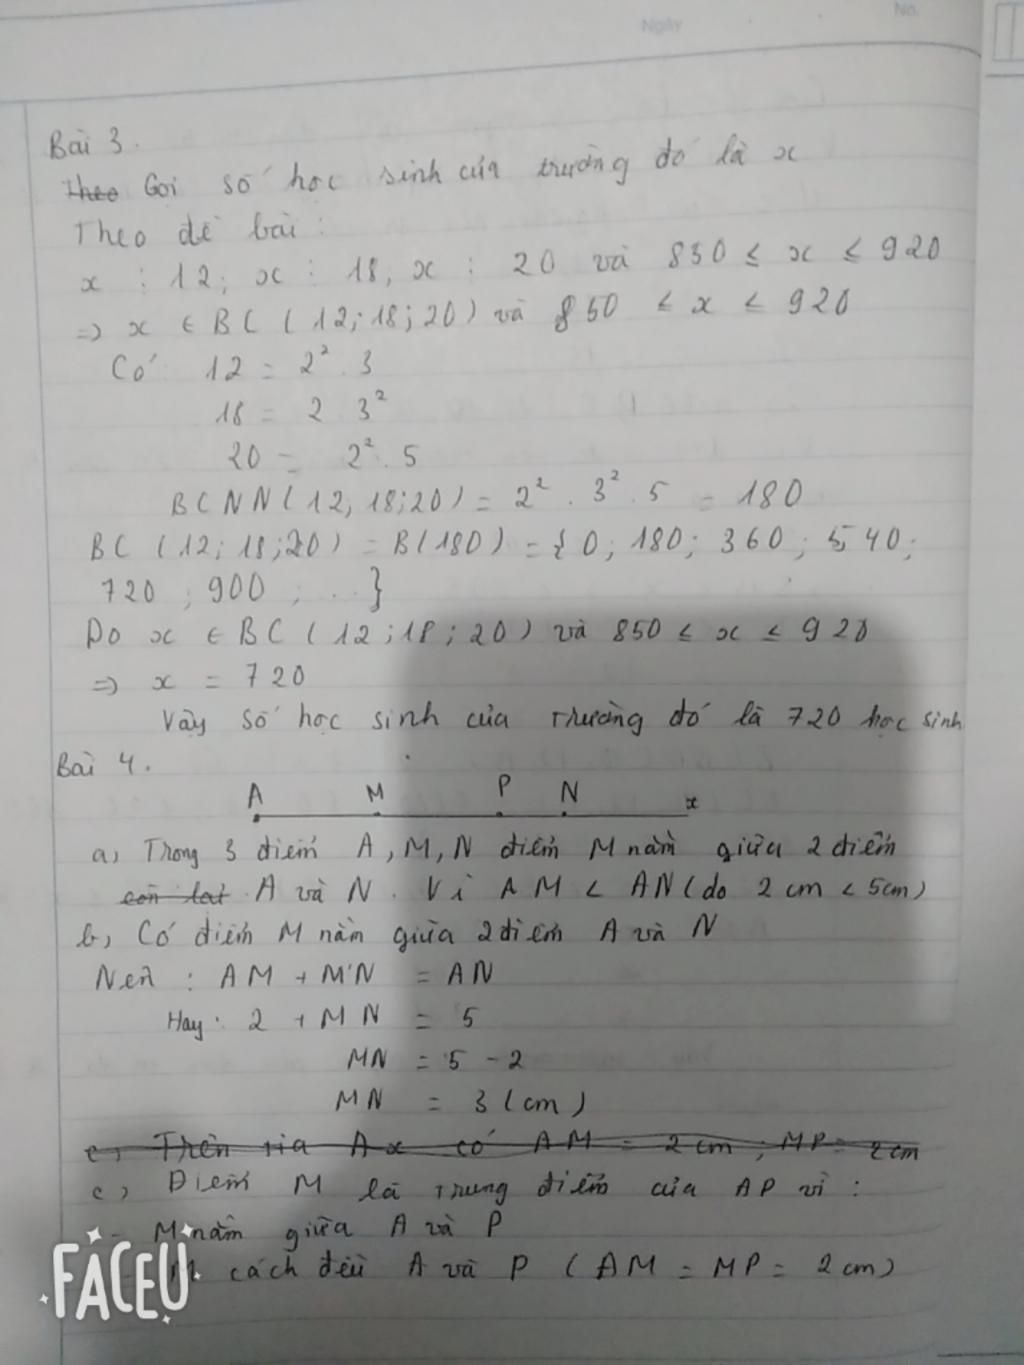 Ngày
No.
Bài 3.
Theo Gọi số học sinh của trường đó là x
Theo đề bài:
x ⋮ 12; x ⋮ 18, x ⋮ 20 và 850 ≤ x ≤ 920
=> x ∈ BC (12;18;20) và 850 ≤ x ≤ 920
Có: 12 = 2² . 3
18 = 2 . 3²
20 = 2² . 5
BCNN(12;18;20) = 2² . 3² . 5 = 180
BC (12;18;20) = B(180) = {0; 180; 360; 540;
720; 900; ...}
Do x ∈ BC (12;18;20) và 850 ≤ x ≤ 920
=> x = 720
Vậy số học sinh của trường đó là 720 học sinh
Bài 4.
A M P N x
a, Trong 3 điểm A, M, N điểm M nằm giữa 2 điểm
còn lại A và N. Vì AM < AN (do 2 cm < 5cm)
b, Có điểm M nằm giữa 2 điểm A và N
Nên : AM + MN = AN
Hay: 2 + MN = 5
MN = 5 - 2
MN = 3 (cm)
c, Trên tia Ax có AM = 2 cm; MP = 2 cm
c, Điểm M là trung điểm của AP vì :
- M nằm giữa A và P
- M cách đều A và P (AM = MP = 2 cm)
FACEU